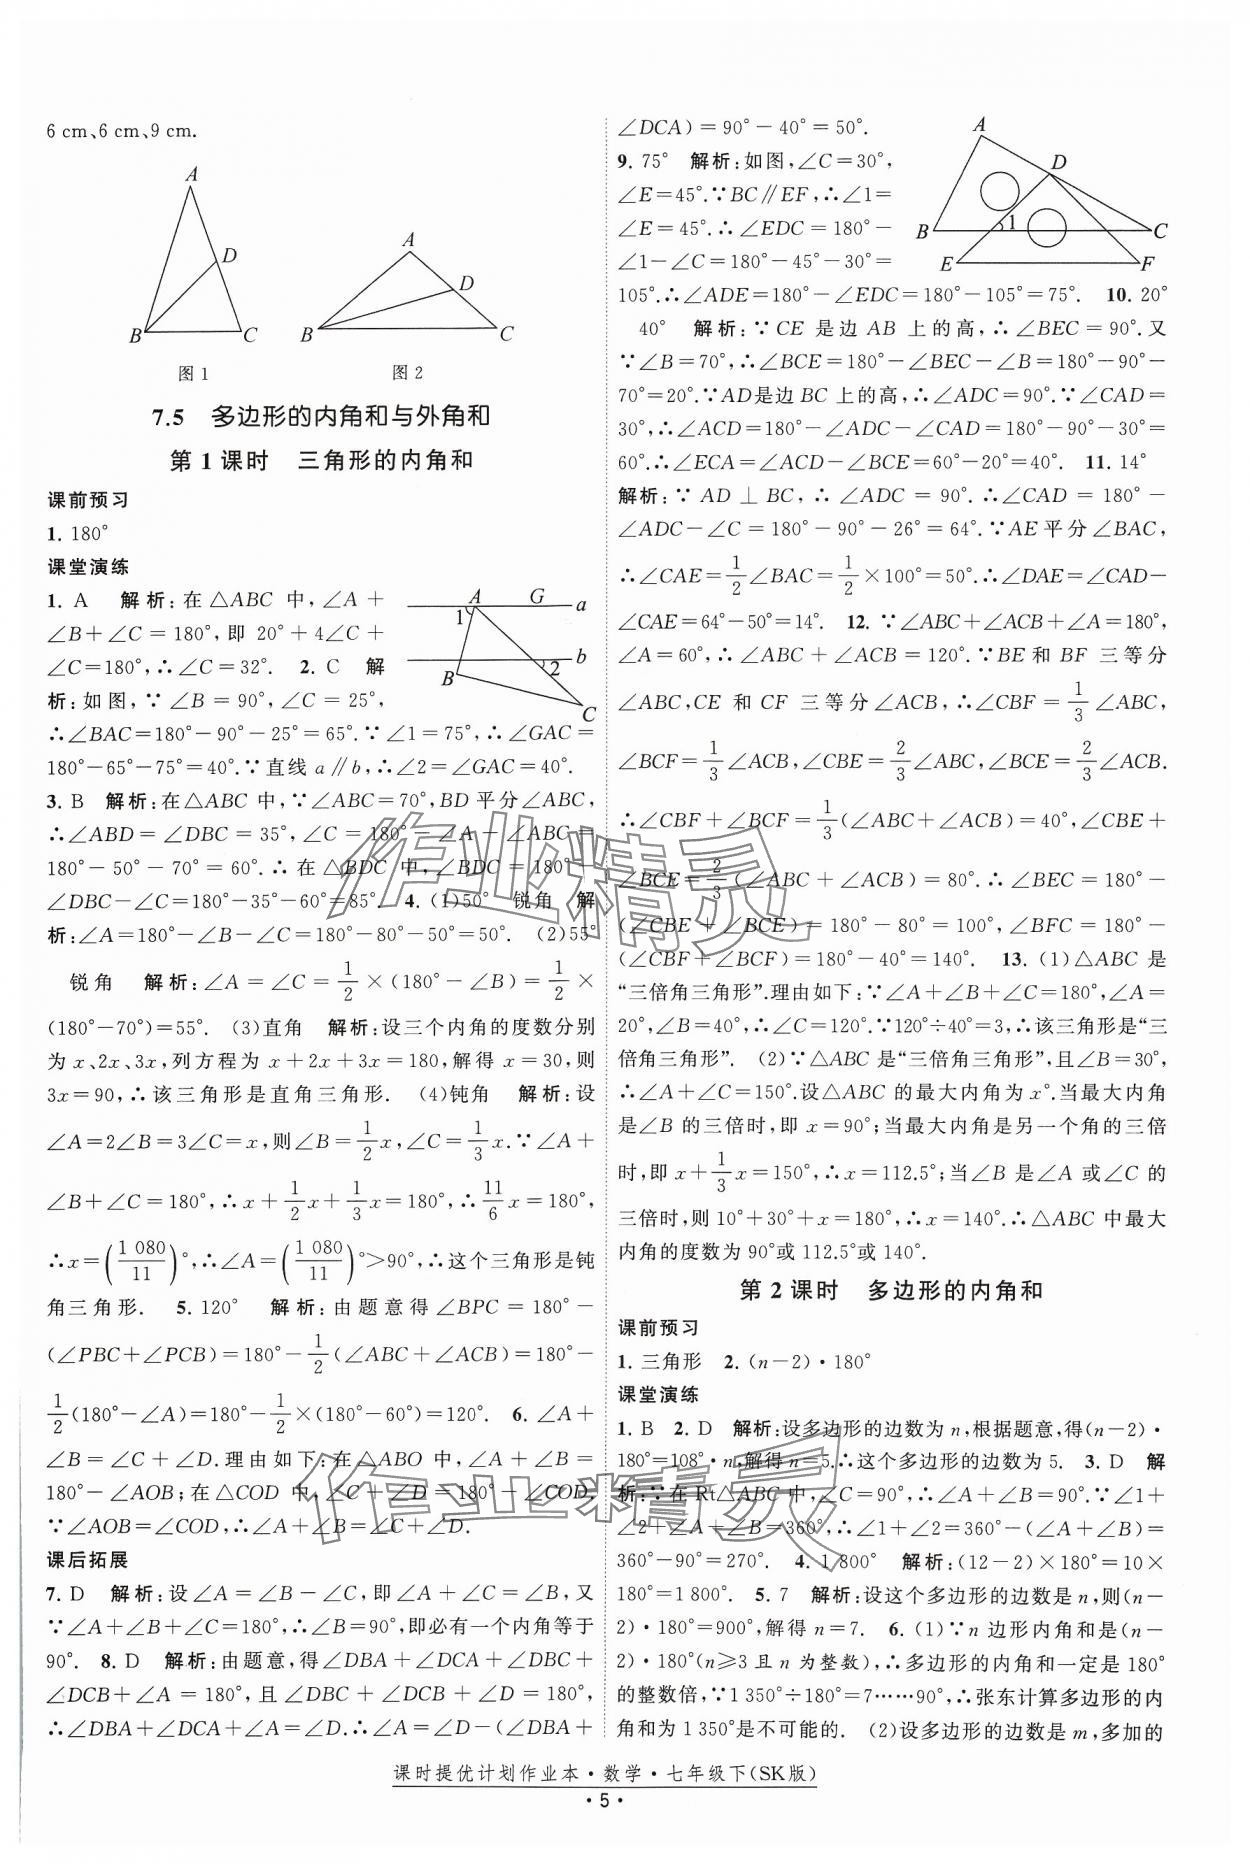 6 cm、6 cm、9 cm.
A
D
B
C
图 1
A
D
B
C
图 2
7.5 多边形的内角和与外角和
第 1 课时 三角形的内角和
课前预习
1. 180°
课堂演练
1. A 解析:在△ABC 中,∠A＋
∠B＋∠C＝180°,即 20°＋4∠C＋
∠C＝180°,∴∠C＝32°. 2. C 解
析:如图,∵∠B＝90°,∠C＝25°,
A G a
1
b
2
B
C
∴∠BAC＝180°－90°－25°＝65°.∵∠1＝75°,∴∠GAC＝
180°－65°－75°＝40°.∵直线 a∥b,∴∠2＝∠GAC＝40°.
3. B 解析:在△ABC 中,∵∠ABC＝70°,BD 平分∠ABC,
∴∠ABD＝∠DBC＝35°,∠C＝180°－∠A－∠ABC＝
180°－50°－70°＝60°.∴在△BDC 中,∠BDC＝180°－
∠DBC－∠C＝180°－35°－60°＝85°. 4. (1)50° 锐角 解
析:∠A＝180°－∠B－∠C＝180°－80°－50°＝50°. (2)55°
锐角 解析:∠A＝∠C＝1/2×(180°－∠B)＝1/2×
(180°－70°)＝55°. (3)直角 解析:设三个内角的度数分别
为 x、2x、3x,列方程为 x＋2x＋3x＝180,解得 x＝30,则
3x＝90,∴该三角形是直角三角形. (4)钝角 解析:设
∠A＝2∠B＝3∠C＝x,则∠B＝1/2x,∠C＝1/3x.∵∠A＋
∠B＋∠C＝180°,∴x＋1/2x＋1/3x＝180°,∴11/6x＝180°,
∴x＝(1 080/11)°,∴∠A＝(1 080/11)°＞90°,∴这个三角形是钝
角三角形. 5. 120° 解析:由题意得∠BPC＝180°－
(∠PBC＋∠PCB)＝180°－1/2(∠ABC＋∠ACB)＝180°－
1/2(180°－∠A)＝180°－1/2×(180°－60°)＝120°. 6. ∠A＋
∠B＝∠C＋∠D.理由如下:在△ABO 中,∠A＋∠B＝
180°－∠AOB;在△COD 中,∠C＋∠D＝180°－∠COD.
∵∠AOB＝∠COD,∴∠A＋∠B＝∠C＋∠D.
课后拓展
7. D 解析:设∠A＝∠B－∠C,即∠A＋∠C＝∠B,又
∵∠A＋∠B＋∠C＝180°,∴∠B＝90°,即必有一个内角等于
90°. 8. D 解析:由题意,得∠DBA＋∠DCA＋∠DBC＋
∠DCB＋∠A＝180°,且∠DBC＋∠DCB＋∠D＝180°,
∴∠DBA＋∠DCA＋∠A＝∠D.∴∠A＝∠D－(∠DBA＋
∠DCA)＝90°－40°＝50°.
9. 75° 解析:如图,∠C＝30°,
∠E＝45°.∵BC∥EF,∴∠1＝
∠E＝45°.∴∠EDC＝180°－
∠1－∠C＝180°－45°－30°＝
A
D
B
1
C
E
F
105°.∴∠ADE＝180°－∠EDC＝180°－105°＝75°. 10. 20°
40° 解析:∵CE 是边 AB 上的高,∴∠BEC＝90°.又
∵∠B＝70°,∴∠BCE＝180°－∠BEC－∠B＝180°－90°－
70°＝20°.∵AD是边 BC 上的高,∴∠ADC＝90°.∵∠CAD＝
30°,∴∠ACD＝180°－∠ADC－∠CAD＝180°－90°－30°＝
60°.∴∠ECA＝∠ACD－∠BCE＝60°－20°＝40°. 11. 14°
解析:∵AD⊥BC,∴∠ADC＝90°.∴∠CAD＝180°－
∠ADC－∠C＝180°－90°－26°＝64°.∵AE平分∠BAC,
∴∠CAE＝1/2∠BAC＝1/2×100°＝50°.∴∠DAE＝∠CAD－
∠CAE＝64°－50°＝14°. 12. ∵∠ABC＋∠ACB＋∠A＝180°,
∠A＝60°,∴∠ABC＋∠ACB＝120°.∵BE 和 BF 三等分
∠ABC,CE 和 CF 三等分∠ACB,∴∠CBF＝1/3∠ABC,
∠BCF＝1/3∠ACB,∠CBE＝2/3∠ABC,∠BCE＝2/3∠ACB.
∴∠CBF＋∠BCF＝1/3(∠ABC＋∠ACB)＝40°,∠CBE＋
∠BCE＝2/3(∠ABC＋∠ACB)＝80°.∴∠BEC＝180°－
(∠CBE＋∠BCE)＝180°－80°＝100°,∠BFC＝180°－
(∠CBF＋∠BCF)＝180°－40°＝140°. 13. (1)△ABC 是
“三倍角三角形”.理由如下:∵∠A＋∠B＋∠C＝180°,∠A＝
20°,∠B＝40°,∴∠C＝120°.∵120°÷40°＝3,∴该三角形是“三
倍角三角形”. (2)∵△ABC 是“三倍角三角形”,且∠B＝30°,
∴∠A＋∠C＝150°.设△ABC 的最大内角为 x°.当最大内角
是∠B 的三倍时,即 x＝90°;当最大内角是另一个角的三倍
时,即 x＋1/3x＝150°,∴x＝112.5°;当∠B 是∠A 或∠C 的
三倍时,则 10°＋30°＋x＝180°,∴x＝140°.∴△ABC 中最大
内角的度数为 90°或 112.5°或 140°.
第 2 课时 多边形的内角和
课前预习
1. 三角形 2. (n－2)·180°
课堂演练
1. B 2. D 解析:设多边形的边数为 n,根据题意,得(n－2)·
180°＝108°·n,解得 n＝5.∴这个多边形的边数为 5. 3. D 解
析:∵在 Rt△ABC 中,∠C＝90°,∴∠A＋∠B＝90°.∵∠1＋
∠2＋∠A＋∠B＝360°,∴∠1＋∠2＝360°－(∠A＋∠B)＝
360°－90°＝270°. 4. 1 800° 解析:(12－2)×180°＝10×
180°＝1 800°. 5. 7 解析:设这个多边形的边数是 n,则(n－
2)·180°＝900°,解得 n＝7. 6. (1)∵n 边形内角和是(n－
2)·180°(n≥3 且 n 为整数),∴多边形的内角和一定是 180°
的整数倍,∵1 350°÷180°＝7……90°,∴张东计算多边形的内
角和为 1 350°是不可能的. (2)设多边形的边数是 m,多加的
课时提优计划作业本·数学·七年级下(SK版)
· 5 ·
作业精灵
作业精灵